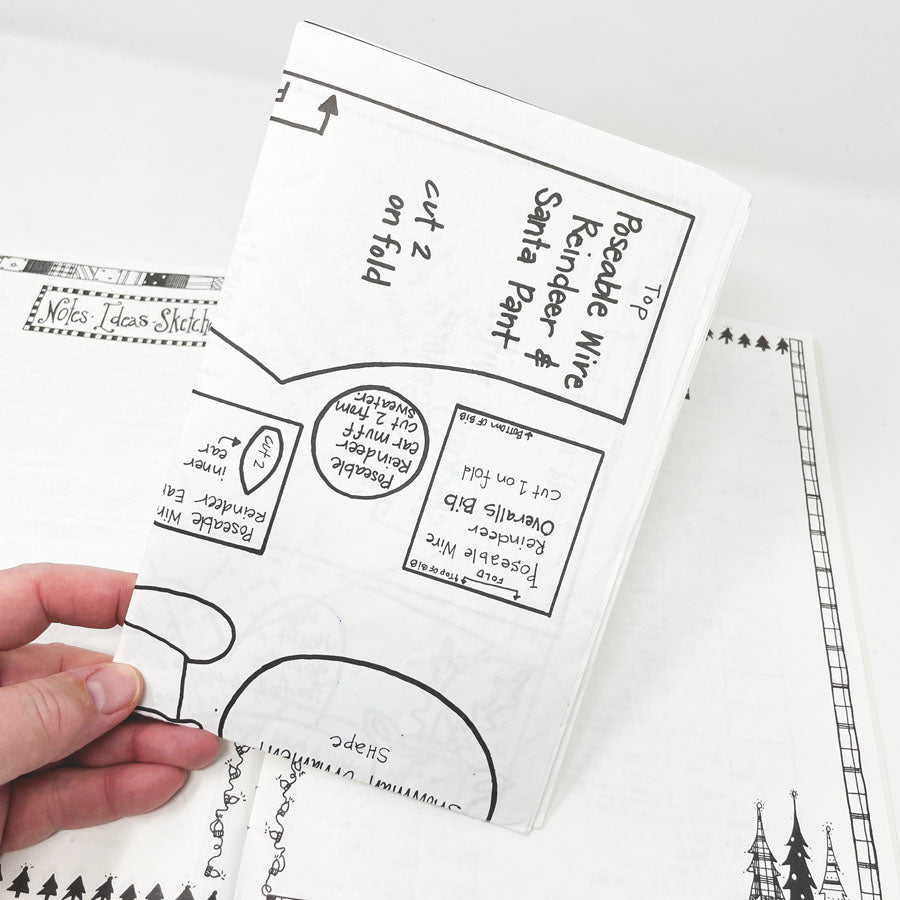 Top
Poseable Wire
Reindeer &
Santa Pant
cut 2
on fold
Notes · Ideas · Sketche
Poseable Wir
Reindeer Ear
inner
ear
cut 2
Poseable
Reindeer
ear muff
cut 2 from
sweater
FOLD
Top of BiB
Poseable Wire
Reindeer
Overalls Bib
cut 1 on fold
Bottom of BiB
Snowman Ornament
Shape